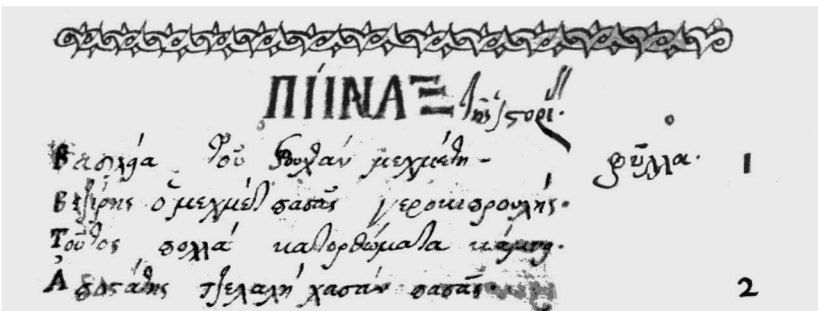 ΠΙΝΑΞ τῆς ἱστορί
Βασιλεία τοῦ σουλτάν μεχμέτη - φύλλα. 1
Βεζίρης ὁ μεχμὲτ πασᾶς γεροκιπρουλής.
Τοῦτος πολλὰ κατορθώματα κάμνη.
Ἀποστάτης τζελαλὴ χασὰν πασᾶς. 2